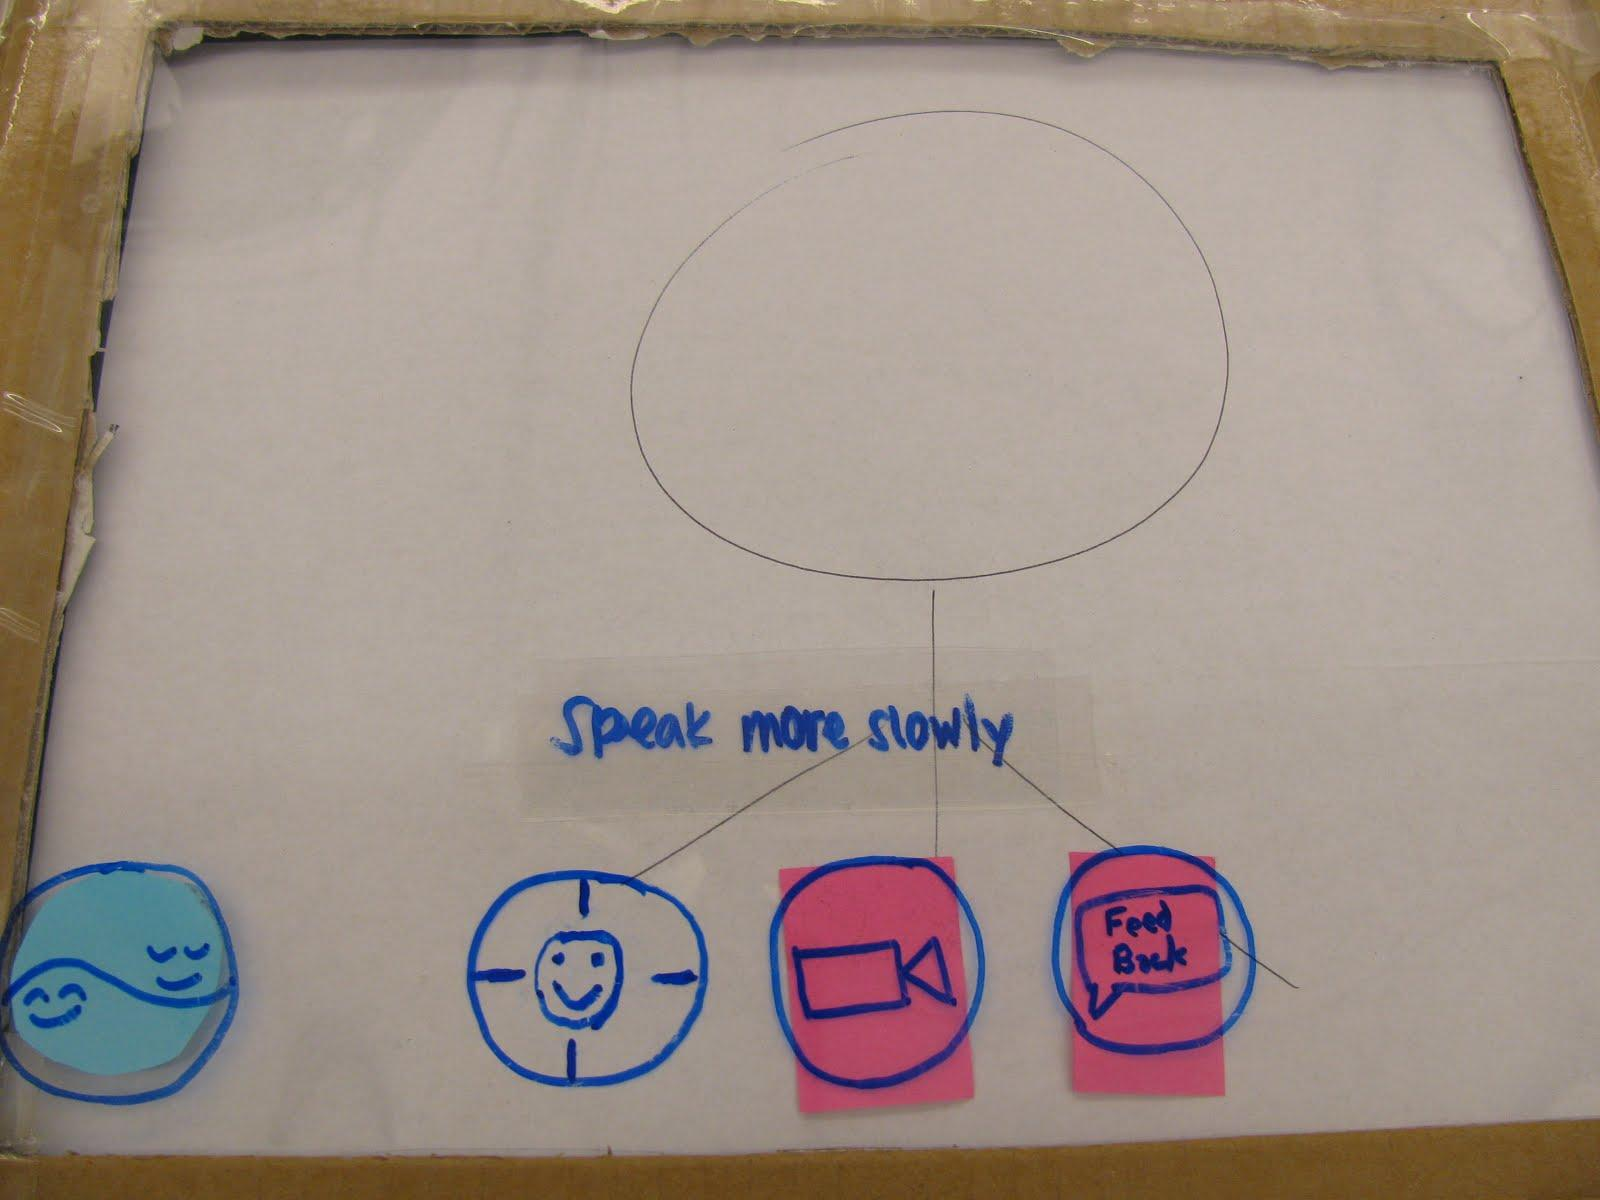 Speak more slowly
Feed
Back